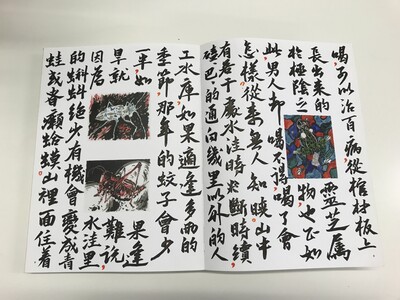 喝可以治百病，從棺材板上
長出來的靈芝屬
於極陰之物也，正如
此男人却喝不得，喝了會
怎樣從來無人知曉，山中
有若干處水洼時斷時續
磕巴的通向幾里以外的人
工水庫，如果適逢多雨的
季節，那年的蚊子會少
一半，如果逢
旱就難説，
因為水洼里
的蝌蚪絶少有機會變成青
蛙或者癩蛤蟆，山裡面住着